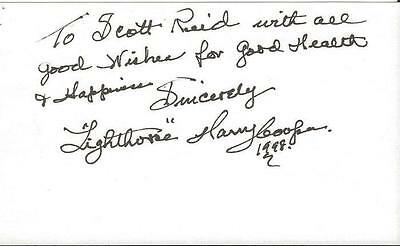 To Scott Reid with all
good Wishes for Good Health
& Happiness
Sincerely
"Lighthorse" Harry Cooper
1998.